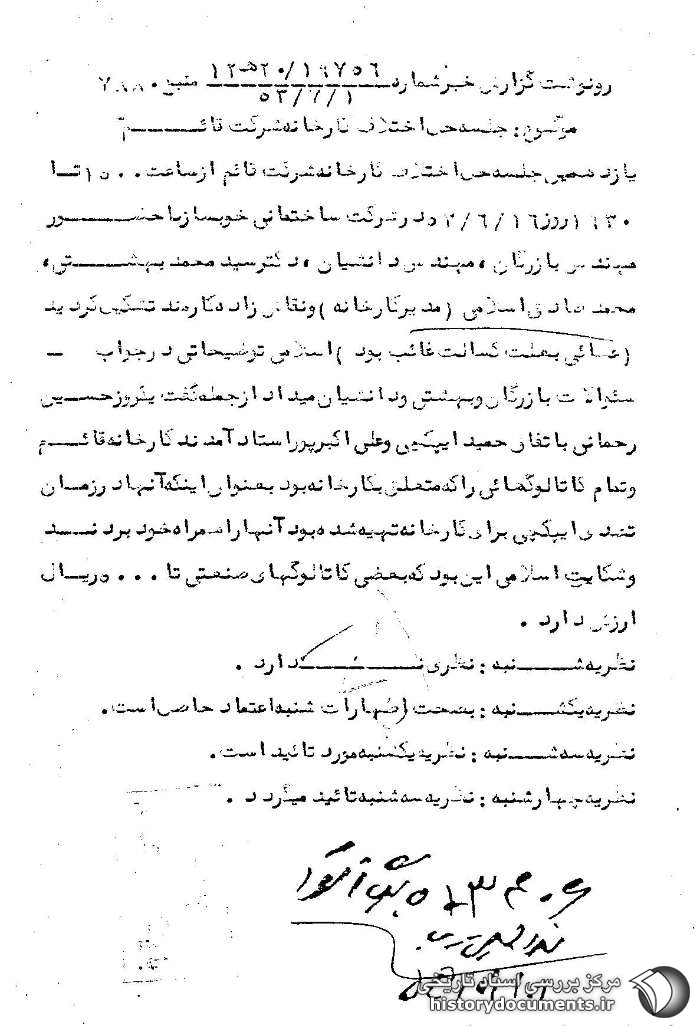 رونوشت گزارش خبر شماره ۱۹۷۵۶/۲۰هـ۱۲ منبع ۷۸۸۰
۵۳/۷/۱
موضوع : جلسه حل اختلاف کارخانه شرکت قائـــــم
یازدهمین جلسه حل اختلاف کارخانه شرکت قائم از ساعت ۱۵۰۰ تـا
روز ۱۶/۶/ در شرکت ساختمانی خوبساز با حضـــــور
مهندس بازرگان ، مهندس دانشیان ، دکتر سید محمد بهشـــتی ،
محمد صادق اسلامی ( مدیر کارخانه ) و نقاش زاده کارمند تشکیل گردید
( بعلت کسالت غائب بود ) اسلامی توضیحاتی در جواب ــ
سئوالات بازرگان و بهشتی و دانشیان میداد از جمله گفت یکروز حسین
رحمانی باتفاق حمید ایپکچی و علی اکبر پور استاد آمدند کارخانه قائـــم
و تمام کاتالوگهائی را که متعلق بکارخانه بود بعنوان اینکه آنها در زمان
تصدی ایپکچی برای کارخانه تهیه شده بود آنها را همراه خود بردنـــد
و شکایت اسلامی این بود که بعضی کاتالوگهای صنعتی تا ۵۰۰۰ ریـال
ارزش دارد .
نظریه شـــــنبه : نظری نـــــــدارد .
نظریه یکشـــــنبه : بصحت اظهارات شنبه اعتماد حاصل است .
نظریه سه شـــــنبه : نظریه یکشنبه مورد تائید است .
نظریه چهارشنبه : نظریه سه شنبه تائید میگردد .
مرکز بررسی اسناد تاریخی
historydocuments.ir